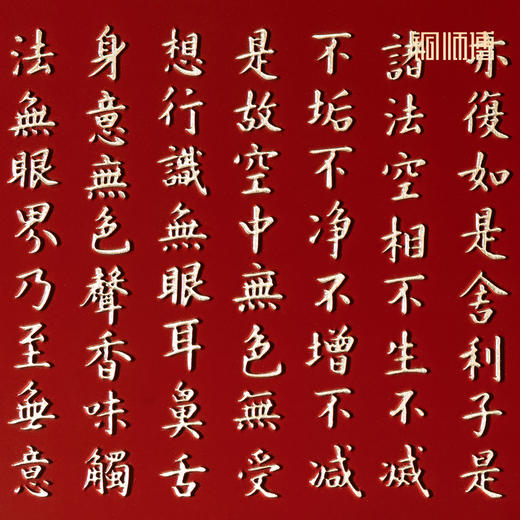 铜师傅
亦復如是舍利子是
諸法空相不生不滅
不垢不净不增不减
是故空中無色無受
想行識無眼耳鼻舌
身意無色聲香味觸
法無眼界乃至無意